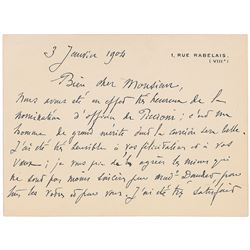 3 Janvier 1904
1, RUE RABELAIS.
(VIIIe)
Bien cher Monsieur,
Nous avons été en effet très heureux de la
nomination d'officier de Piccioni ; c'est un
homme de grand mérite dont la carrière sera belle
J'ai été très sensible à vos félicitations et à vos
vœux ; je vous prie de agréer les miens qui
ne sont pas moins sincères pour Made Daudet pour
tous les vôtres et pour vous. J'ai été très satisfait